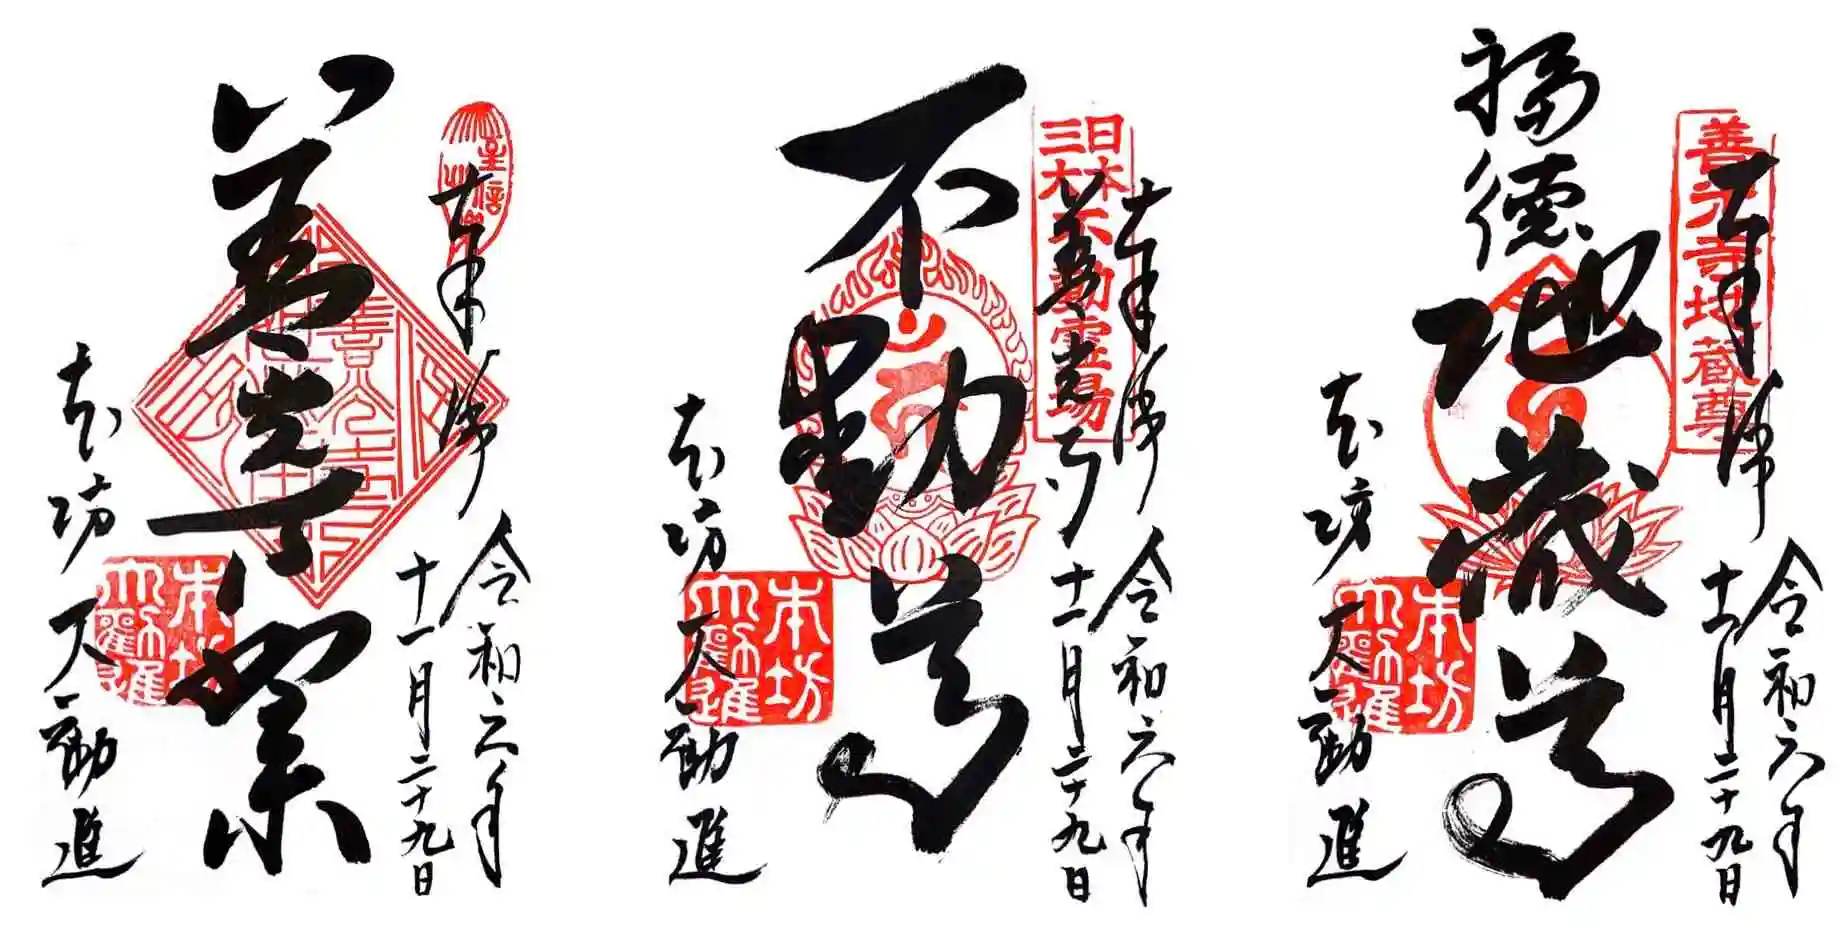 奉拝
令和六年
十一月二十九日
善光寺
本坊
大勧進
本坊
大勧進
日本
三大不動霊場
奉拝
令和六年
善光寺
十一月二十九日
不動尊
本坊
大勧進
本坊
大勧進
善光寺地蔵尊
奉拝
令和六年
十一月二十九日
福徳
地蔵尊
本坊
大勧進
本坊
大勧進